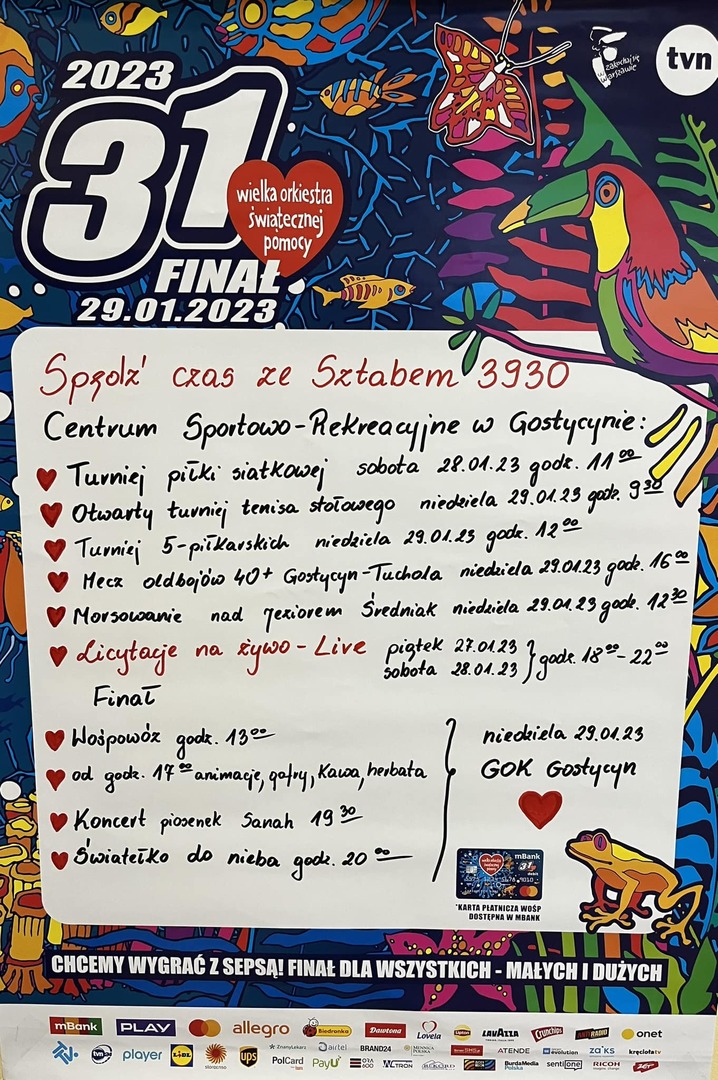 2023
31
wielka orkiestra
świątecznej
pomocy
FINAŁ
29.01.2023
zakochaj się
w Warszawie
tvn
Spędź czas ze Sztabem 3930
Centrum Sportowo-Rekreacyjne w Gostycynie:
Turniej piłki siatkowej sobota 28.01.23 godz. 11 00
Otwarty turniej tenisa stołowego niedziela 29.01.23 godz. 9 30
Turniej 5-piłkarskich niedziela 29.01.23 godz. 12 00
Mecz oldbojów 40+ Gostycyn-Tuchola niedziela 29.01.23 godz. 16 00
Morsowanie nad Jeziorem Średniak niedziela 29.01.23 godz. 12 30
Licytacje na żywo - Live piątek 27.01.23
sobota 28.01.23 } godz. 18 00 - 22 00
Finał
Wośpowóz godz. 13 00
od godz. 17 00 animacje, gofry, kawa, herbata
Koncert piosenek Sanah 19 30
Światełko do nieba godz. 20 00
niedziela 29.01.23
GOK Gostycyn
mBank
31
*KARTA PŁATNICZA WOŚP
DOSTĘPNA W MBANK
CHCEMY WYGRAĆ Z SEPSĄ! FINAŁ DLA WSZYSTKICH - MAŁYCH I DUŻYCH
mBank PLAY allegro Biedronka Dawtona Loveia Lipton LAVAZZA Crunchips ANTYRADIO onet
tvn24 player LIDL ups ZnanyLekarz airtel BRAND24 MENNICA POLSKA ATENDE evolution za'ks kręciołatv
PolCard PayU BurdaMedia Polska sentione RICOH